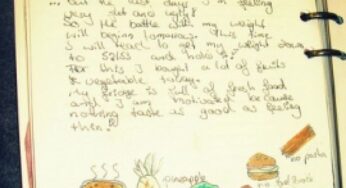 ... but the last days I'm feeling
very fat and ugly!
So the battle with my weight
will begin tomorrow. This time
I will reach to get my weight down
to and hold it.
For this I bought a lot of fruits
& vegetable today.
My fridge is full of fresh food
and I am motivated because
nothing taste as good as feeling
thin!
pineapple
no pasta
no fast food